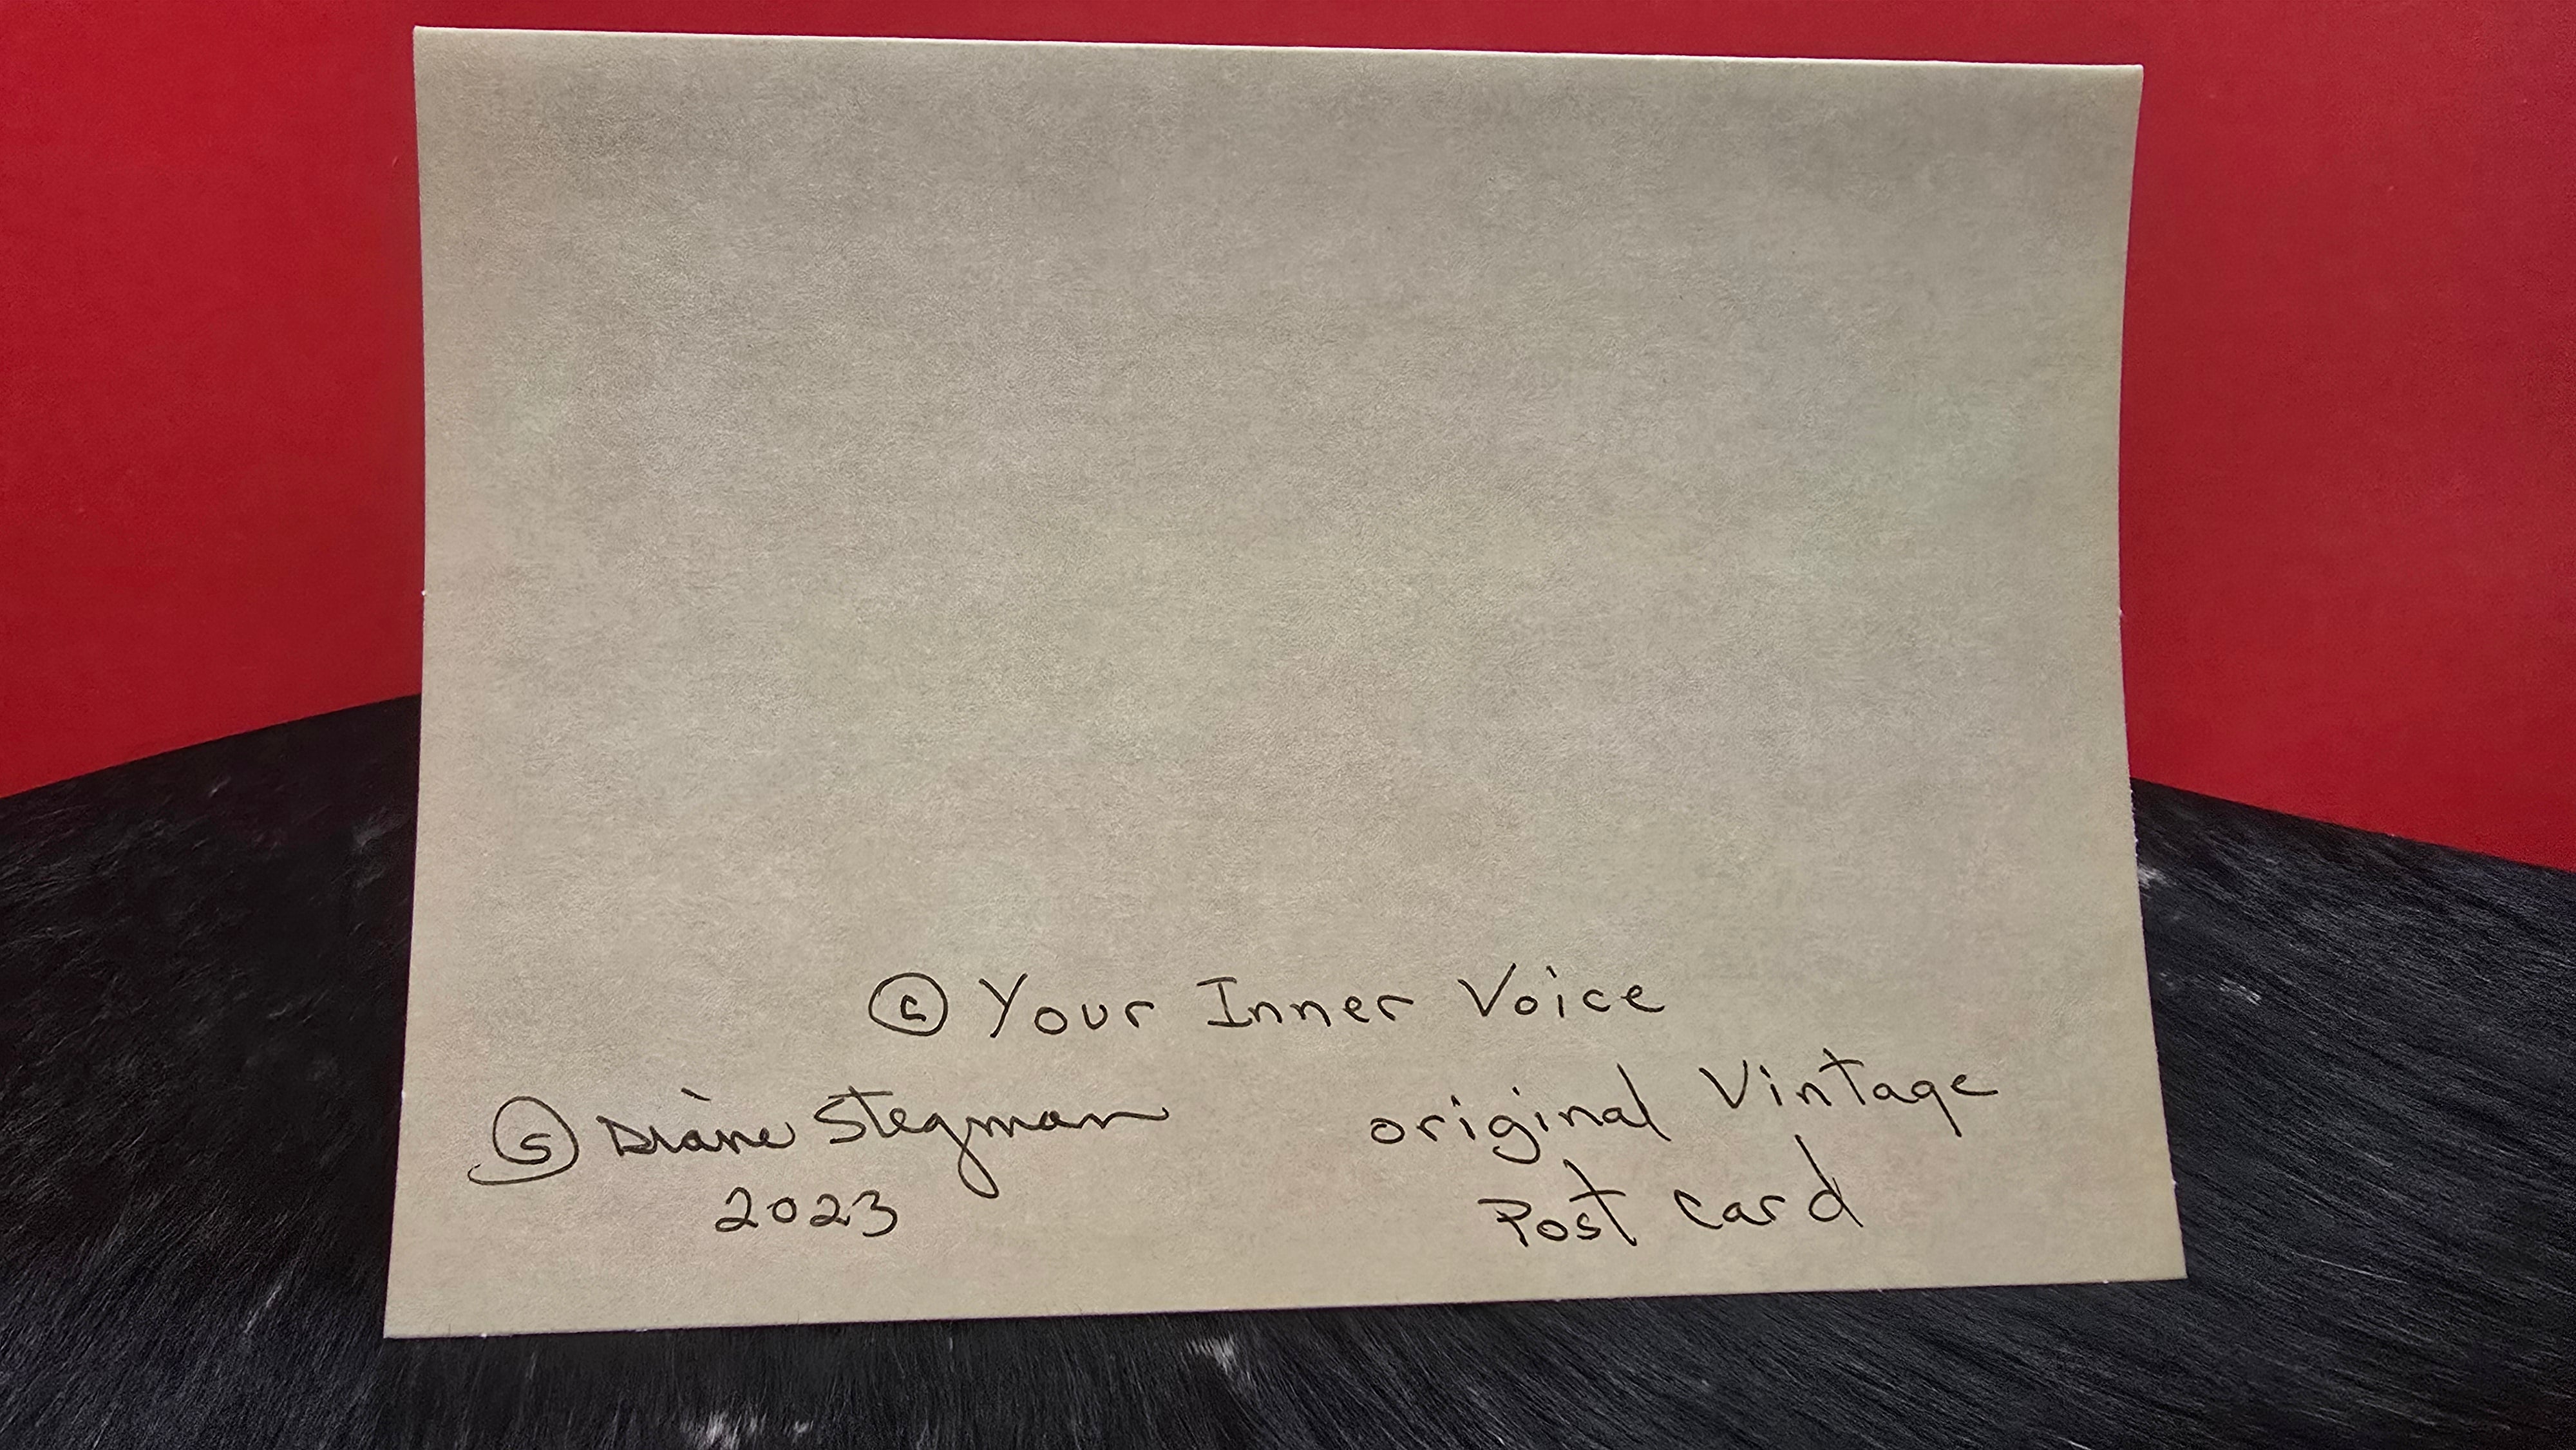 © Your Inner Voice
Ⓢ Diane Stegman
2023
original Vintage
Post card